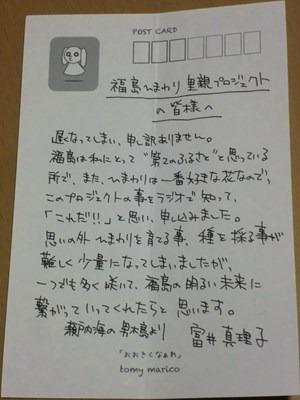 POST CARD
福島ひまわり里親プロジェクト
の皆様へ
遅くなってしまい、申し訳ありません。
福島は私にとって“第2のふるさと”と思っている
所で、また、ひまわりは一番好きな花なので、
このプロジェクトの事をラジオで知って、
「これだ!!」と思い、申し込みました。
思いの外ひまわりを育てる事、種を採る事が
難しく少量になってしまいましたが、
一つでも多く咲いて、福島の明るい未来に
繋がっていってくれたらと思います。
瀬戸内海の男木島より 富井真理子
「おおきくなぁれ」
tomy marico